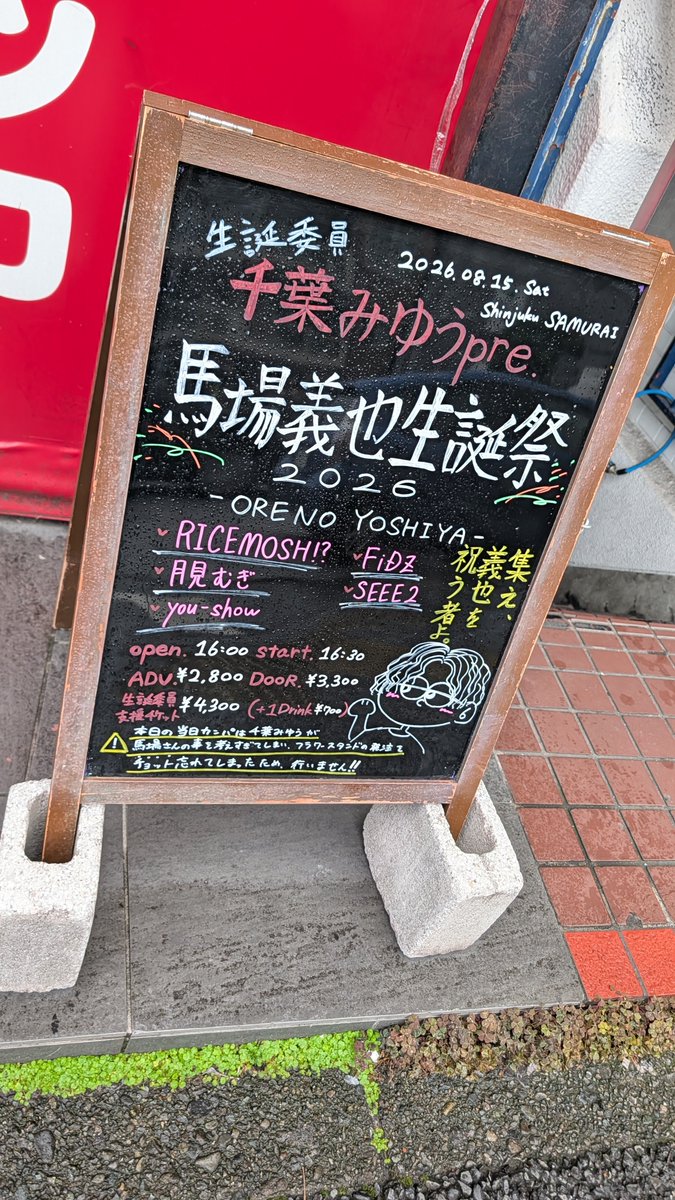 生誕委員
2026.08.15.Sat
Shinjuku SAMURAI
千葉みゆうpre.
馬場義也生誕祭
2026
-ORENO YOSHIYA-
RICEMOSH!?
月見むぎ
you-show
FiDZ
SEEE2
集え、
義也を
祝う者よ。
open. 16:00 start. 16:30
ADV. ¥2,800 DOOR. ¥3,300
生誕委員
支援チケット ¥4,300 (+1Drink ¥700)
本日の当日カンパは千葉みゆうが
馬場さんの事を考えすぎてしまい、フラワースタンドの発注を
チョット忘れてしまったため、行いません!!